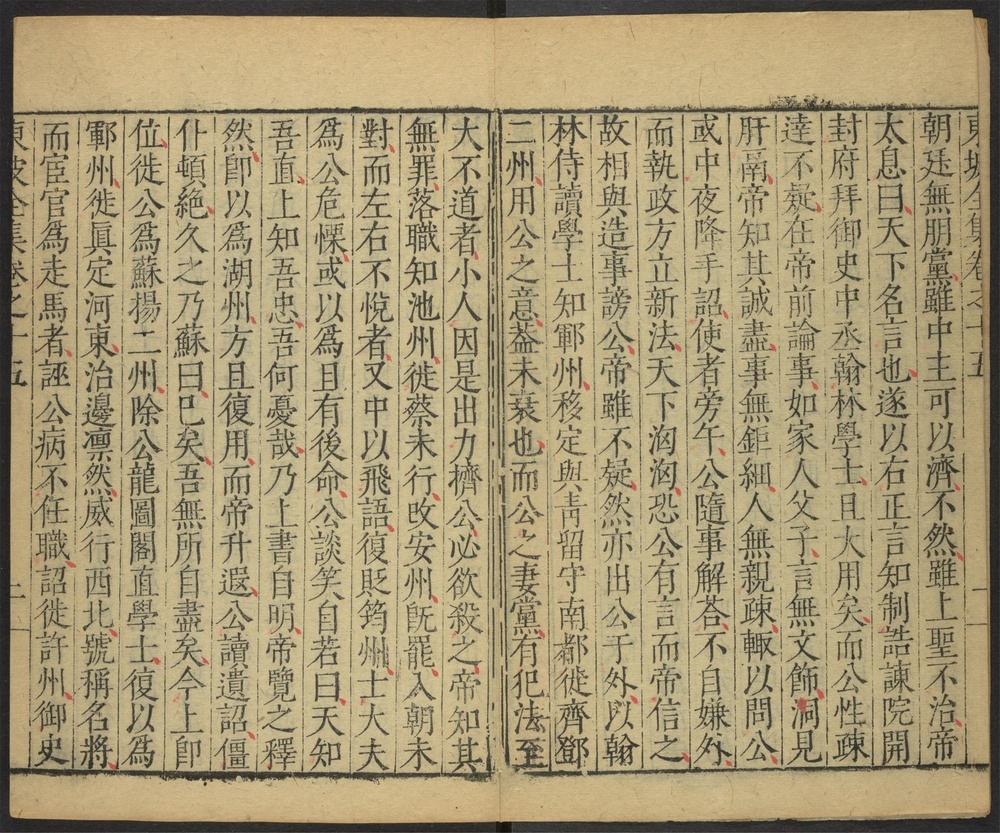 東坡全集卷之十五
朝廷無朋黨雖中主可以濟不然雖上聖不治帝
太息曰天下名言也遂以右正言知制誥諫院開
封府拜御史中丞翰林學士且大用矣而公性疎
達不疑在帝前論事如家人父子言無文飾洞見
肝鬲帝知其誠盡事無鉅細人無親疎輙以問公
或中夜降手詔使者旁午公隨事解荅不自嫌外
而執政方立新法天下洶洶恐公有言而帝信之
故相與造事謗公帝雖不疑然亦出公于外以翰
林侍讀學士知鄆州移定與青留守南都徙齊鄧
二州用公之意葢未衰也而公之妻黨有犯法至
大不道者小人因是出力擠公必欲殺之帝知其
無罪落職知池州徙蔡未行改安州旣罷入朝未
對而左右不悅者又中以飛語復貶筠州士大夫
爲公危慄或以爲且有後命公談笑自若曰天知
吾直上知吾忠吾何憂哉乃上書自明帝覽之釋
然卽以爲湖州方且復用而帝升遐公讀遺詔僵
仆頓絶久之乃蘇曰已矣吾無所自盡矣今上卽
位徙公爲蘇揚二州除公龍圖閣直學士復以爲
鄆州徙眞定河東治邊凛然威行西北號稱名將
而宦官爲走馬者誣公病不任職詔徙許州御史
東坡全集卷之十五 二